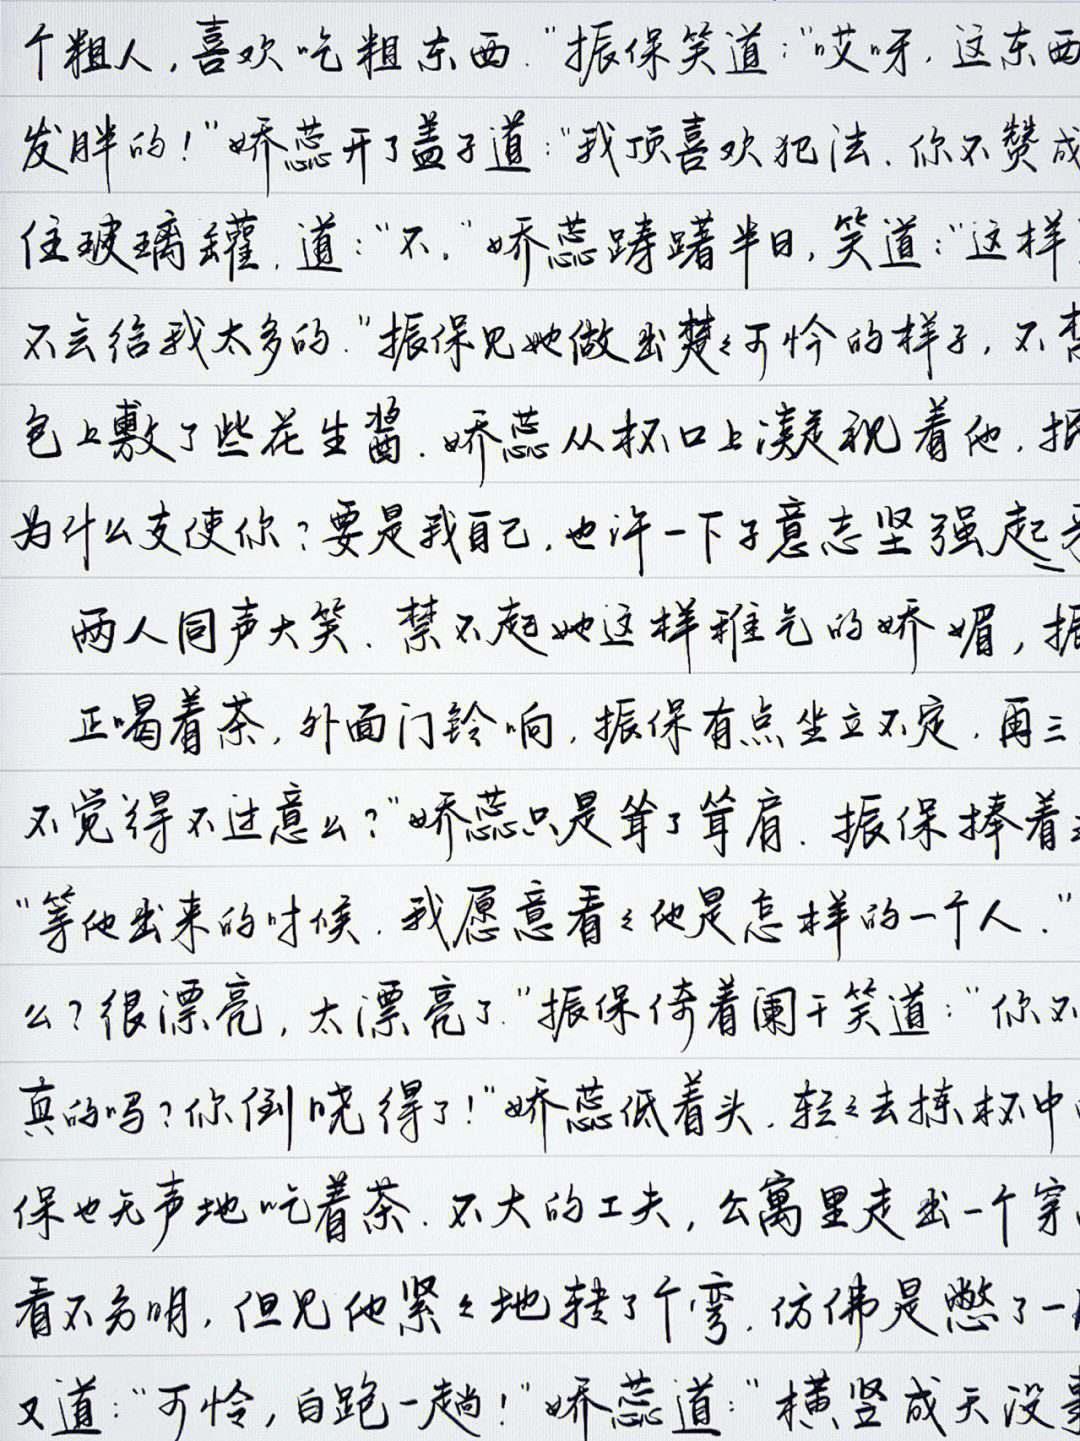 个粗人，喜欢吃粗东西."振保笑道："哎呀，这东西
发胖的！"娇蕊开了盖子道："我顶喜欢犯法．你不赞成
住玻璃罐，道："不。"娇蕊踌躇半日，笑道："这样
不会给我太多的."振保见她做出楚々可怜的样子，不禁
包上敷了些花生酱．娇蕊从杯口上凝视着他，振
为什么支使你？要是我自己，也许一下子意志坚强起来
两人同声大笑．禁不起她这样稚气的娇媚，振
正喝着茶，外面门铃响，振保有点坐立不定．再三
不觉得不过意么？"娇蕊只是耸了耸肩．振保捧着
"等他出来的时候．我愿意看々他是怎样的一个人．"
么？很漂亮，太漂亮了."振保倚着阑干笑道："你不
真的吗？你倒晓得了！"娇蕊低着头．轻々去拣杯中
保也无声地吃着茶．不大的工夫，公寓里走出一个穿
看不分明，但见他紧々地转了个弯．仿佛是憋了一
又道："可怜，白跑一趟！"娇蕊道："横竖成天没事